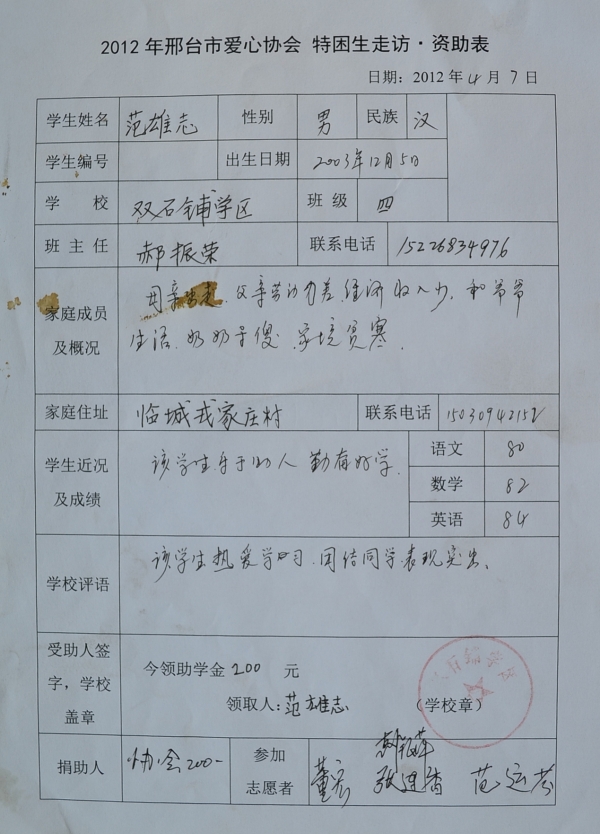 2012年邢台市爱心协会 特困生走访·资助表
日期：2012年4月7日
学生姓名 范雄志 性别 男 民族 汉
学生编号 出生日期 2003年12月5日
学 校 双石铺学区 班 级 四
班 主 任 郝振荣 联系电话 15226834976
家庭成员及概况
母亲出走、父亲劳动力差 经济收入少，和爷爷
生活、奶奶呆傻、家境贫寒.
家庭住址 临城戎家庄村 联系电话 15030942152
学生近况及成绩
该学生乐于助人 勤奋好学.
语文 80
数学 82
英语 84
学校评语
该学生热爱学习、团结同学表现突出、
受助人签字，学校盖章
今领助学金200 元
领取人：范雄志 （学校章）
捐助人 协会200-
参加志愿者
张进香 范运芬